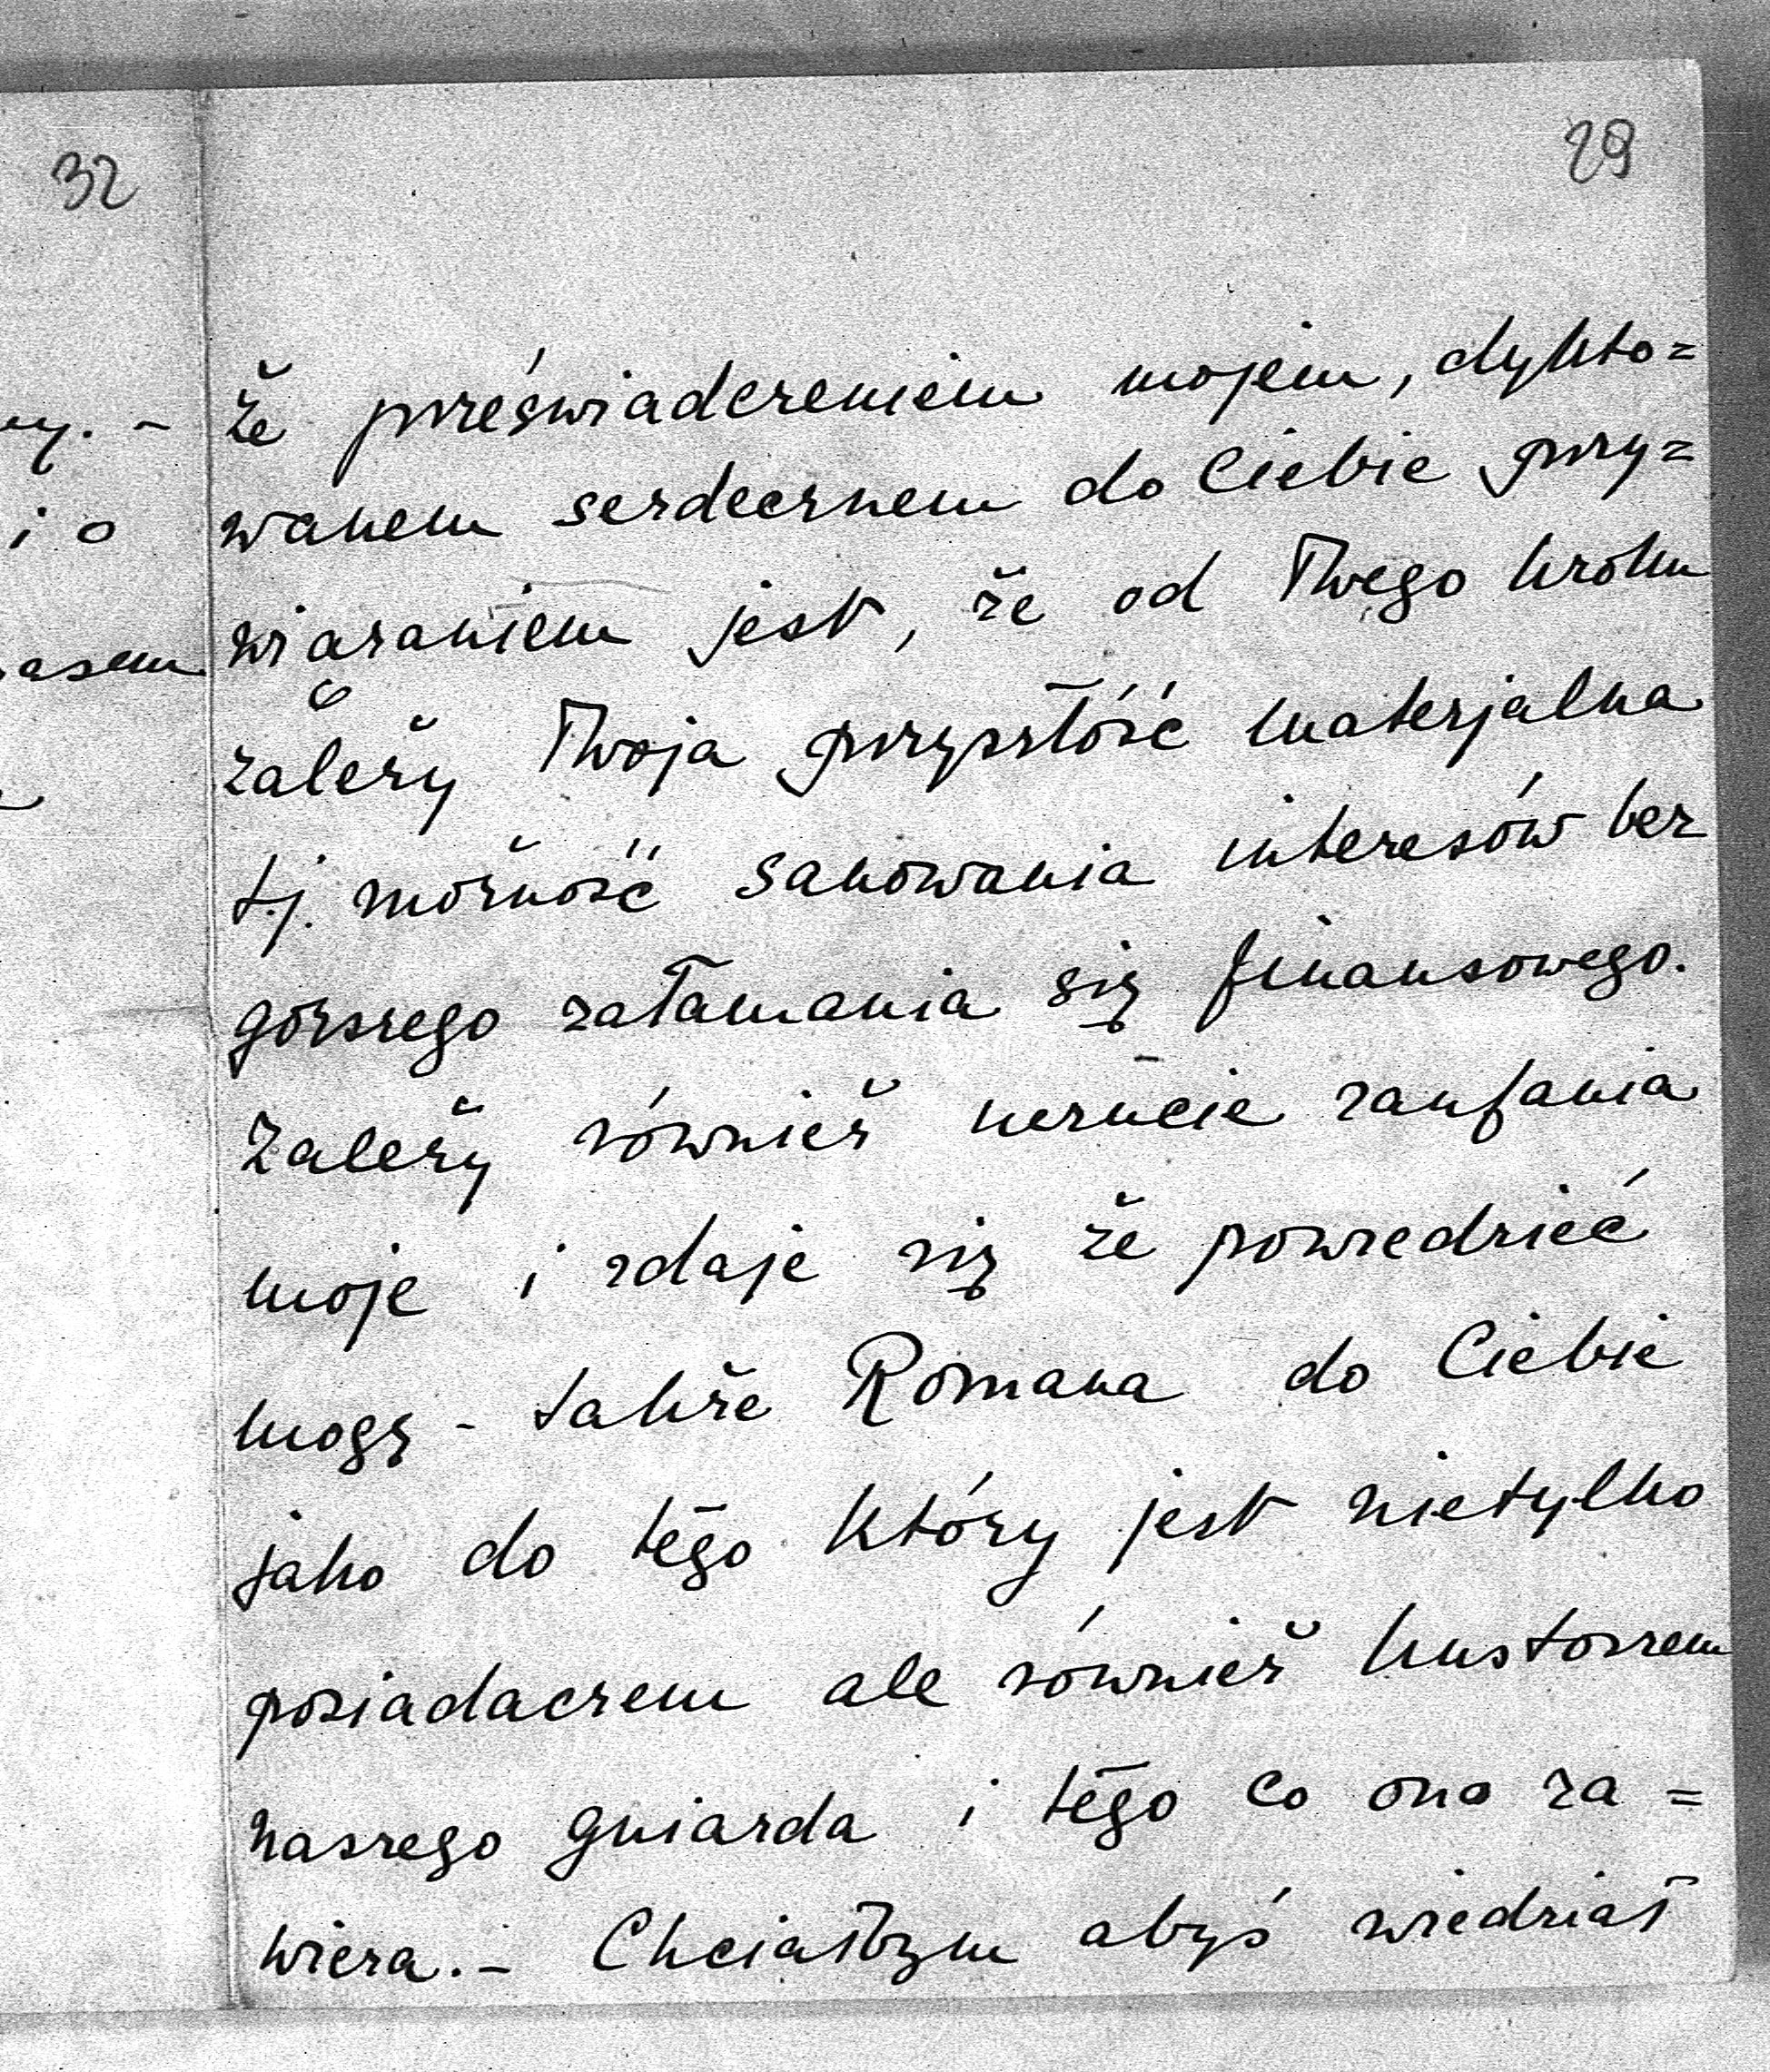 32
29
ny. -
i o
asem
że przeświadczeniem mojem, dykto=
wanem serdecznem do Ciebie przy=
wiązaniem jest, że od Twego kroku
zależy Twoja przyszłość materjalna
t.j. możność sanowania interesów bez
gorszego załamania się finansowego.
Zależy również uczucie zaufania
moje i zdaje się że powiedzieć
mogę - także Romana do Ciebie
jako do tego który jest nietylko
posiadaczem ale również kustoszem
naszego gniazda i tego co ono za=
wiera. - Chciałbym abyś wiedział